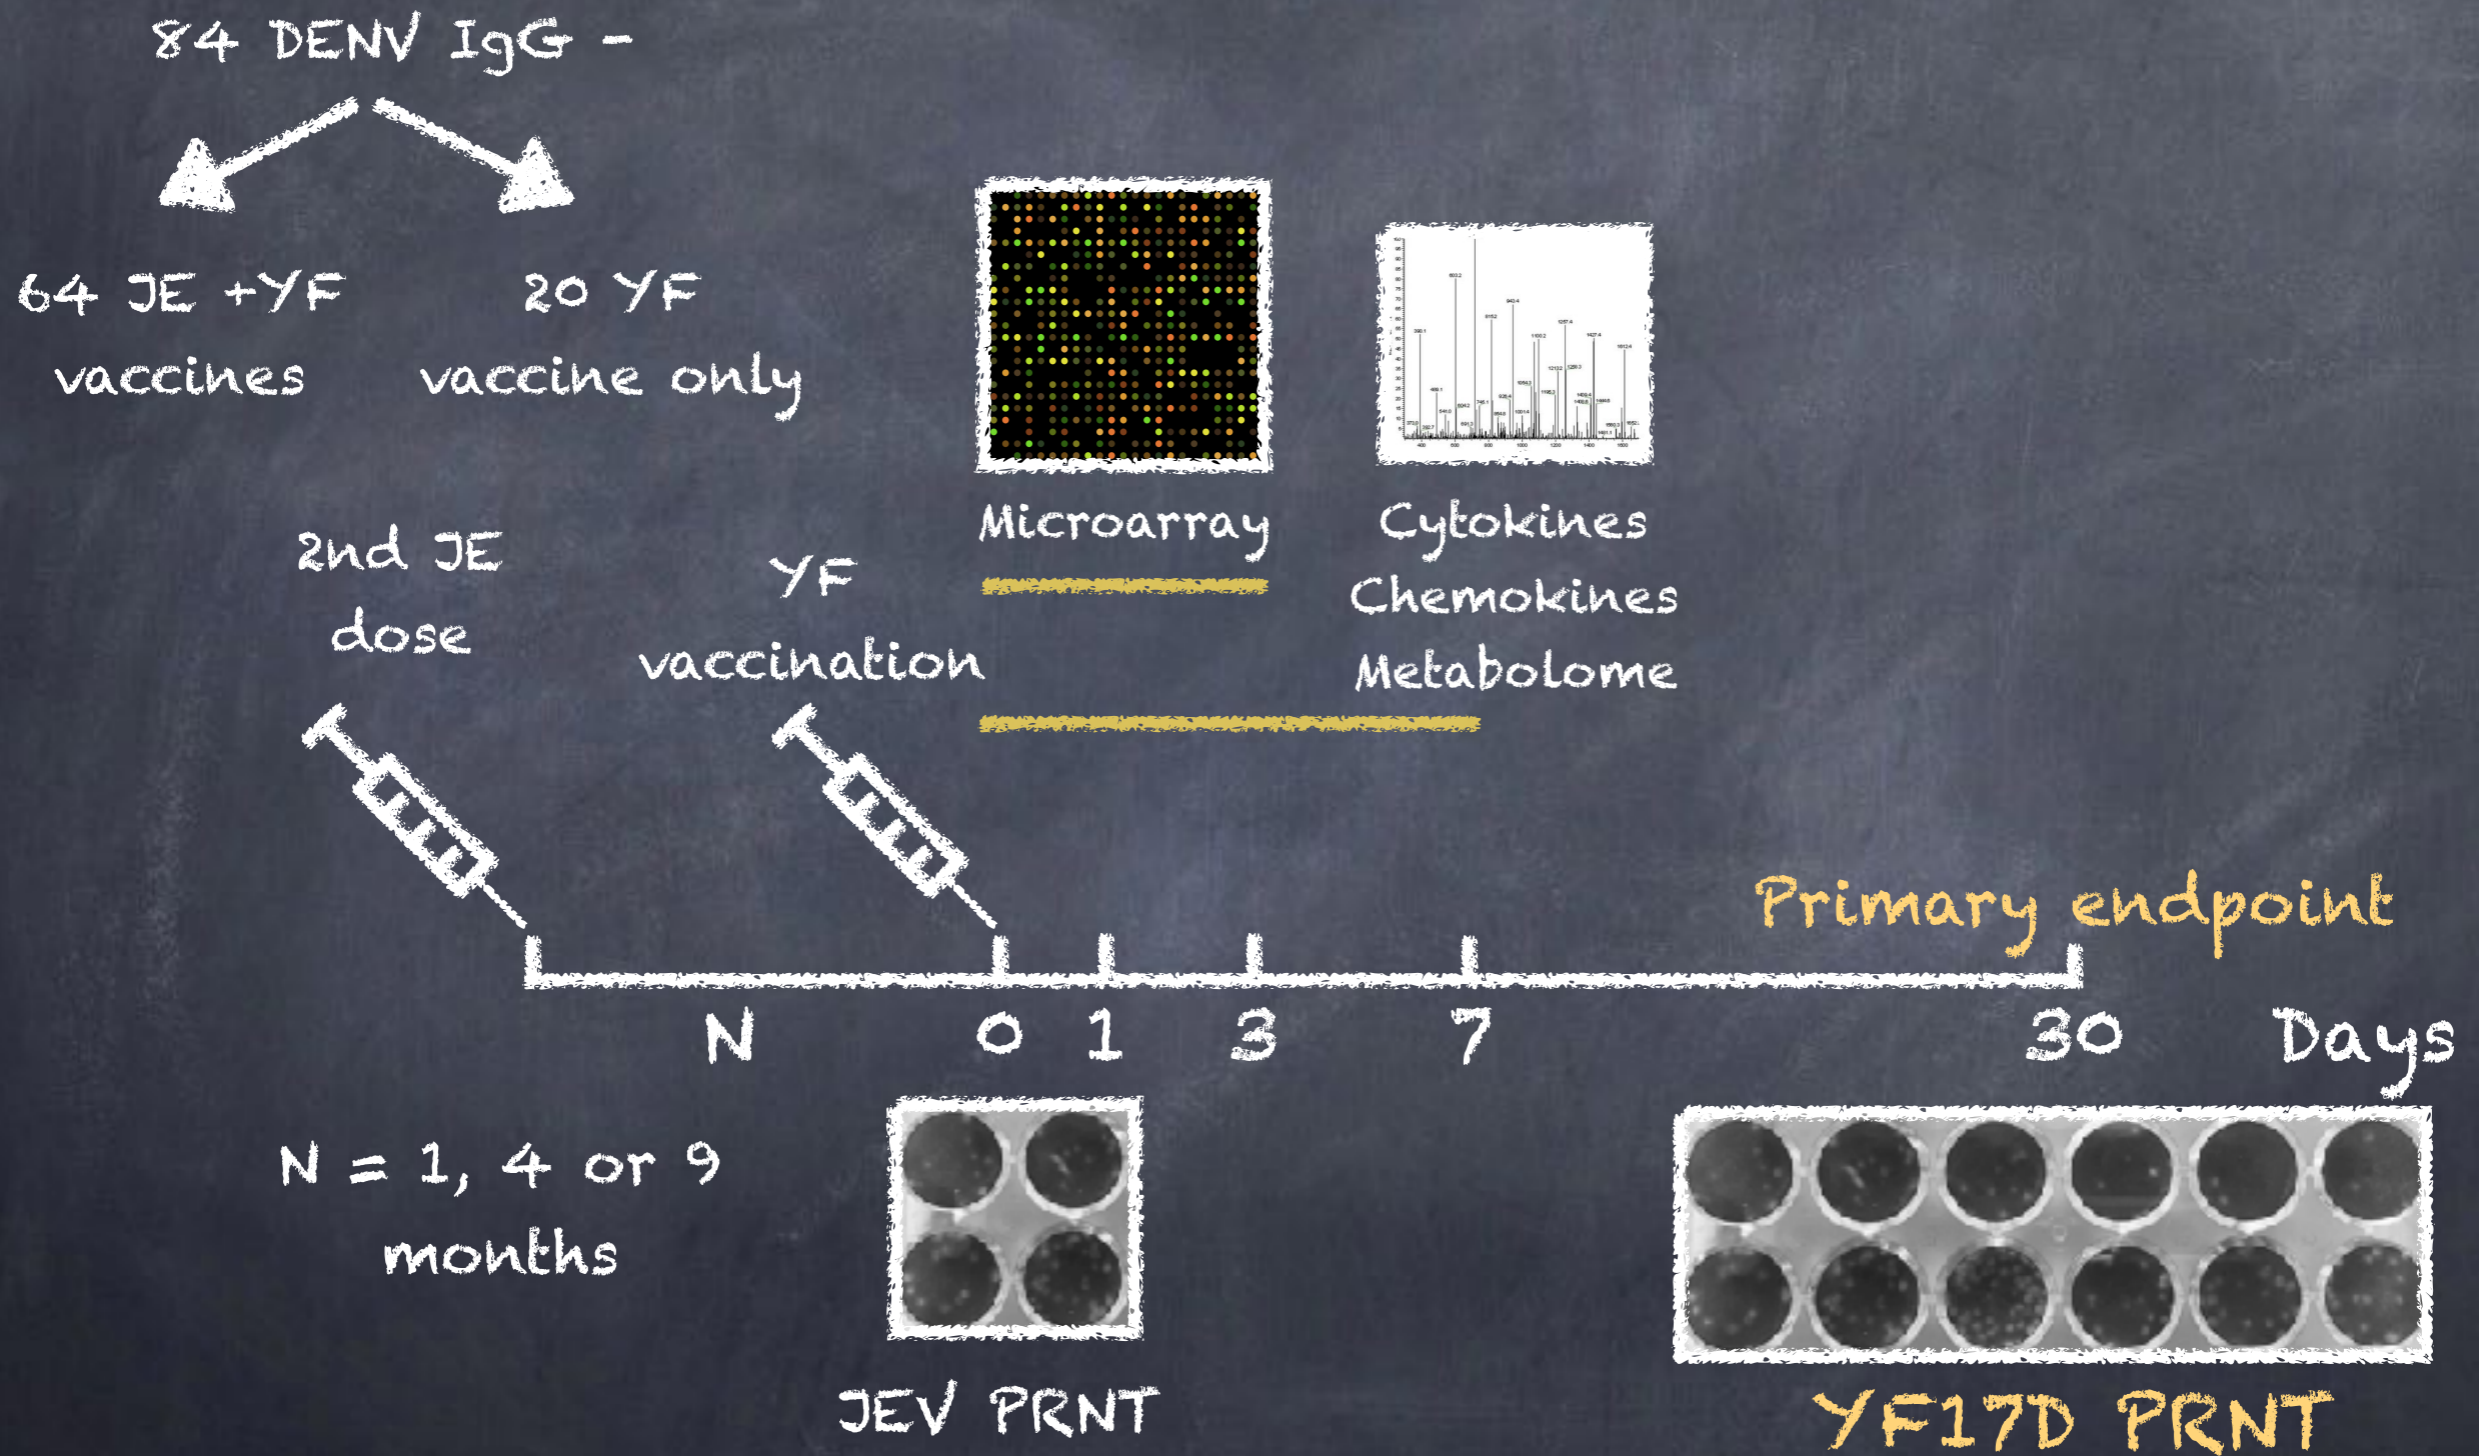 84 DENV IgG -
64 JE +YF
vaccines
20 YF
vaccine only
Microarray
Cytokines
Chemokines
Metabolome
2nd JE
dose
YF
vaccination
Primary endpoint
N
0
1
3
7
30
Days
N = 1, 4 or 9
months
JEV PRNT
YF17D PRNT